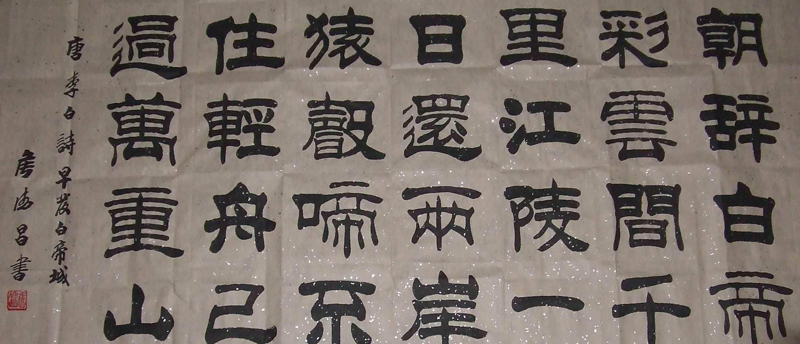 朝辞白帝
彩雲間千
里江陵一
日還兩岸
猿聲啼不
住輕舟已
過萬重山
唐李白詩早發白帝城
昌書